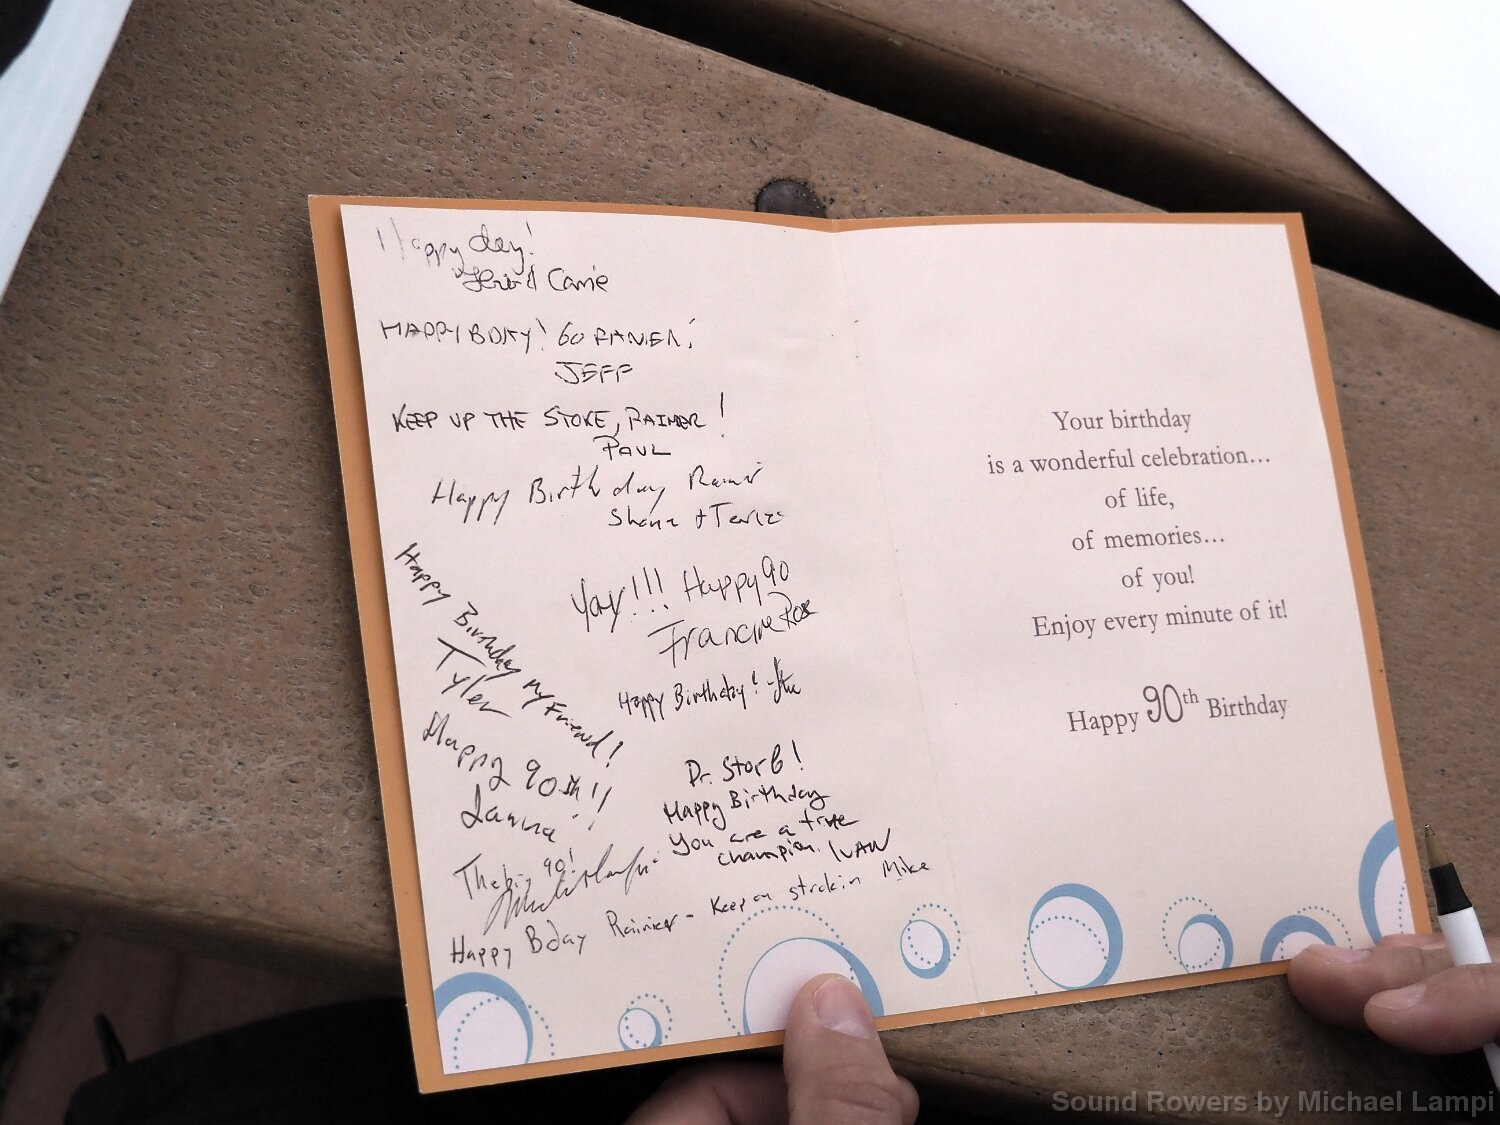 Happy day!
Carrie
HAPPY BDAY! GO RANIER!
JEFF
KEEP UP THE STOKE, RAINER!
PAUL
Happy Birthday Rainer
Shana +
Yay!!! Happy 90
Francine Rose
Happy Birthday my Friend!
Tyler
Happy Birthday!
Happy 90th!!
Dr. Storb!
Happy Birthday
You are a true
champion. IVAN
The big 90!
Happy Bday Rainier - Keep on strokin Mike
Your birthday
is a wonderful celebration...
of life,
of memories...
of you!
Enjoy every minute of it!
Happy 90th Birthday
Sound Rowers by Michael Lampi